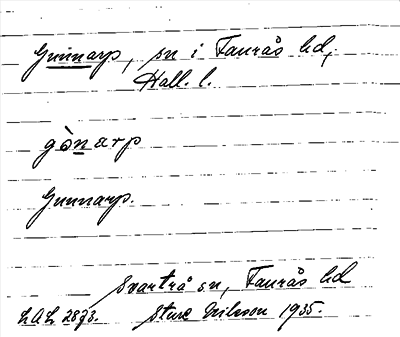 Gunnarp, sn i Faurås hd,
Hall. l.
gònarp
Gunnarp.
Svartrå sn, Faurås hd
LAL 2873. Sture Nilsson 1935.